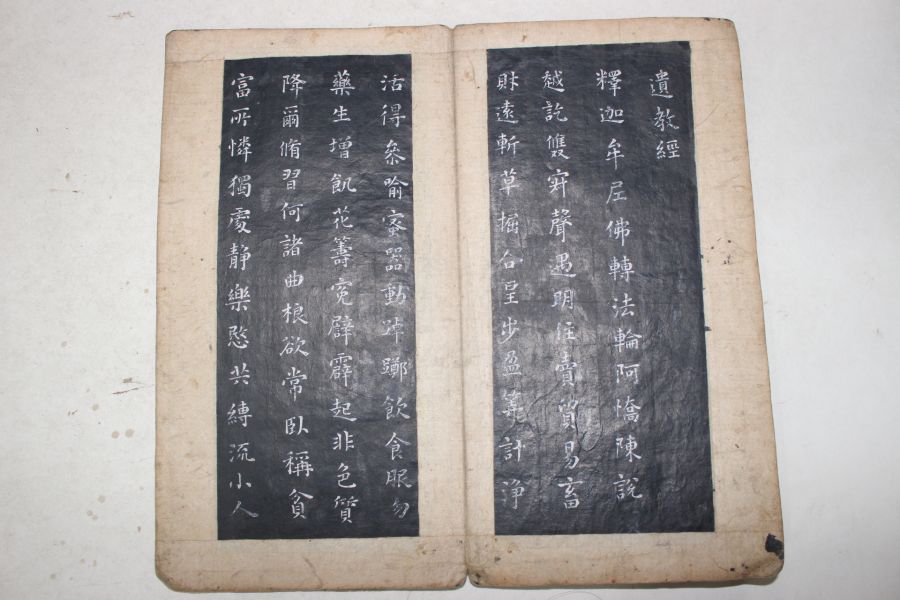 遺教經
釋迦牟尼佛轉法輪阿憍陳說
越訖雙穽聲遇明住賣貿易畜
財遠斬草掘合星步盈算計淨
活得參喻蜜器動掉擲飲食眠勿
藥生增飢花籌寃劈霹起非色質
降爾脩習何諸曲根欲常臥稱貧
富所憐獨處静樂愍共縛流小人